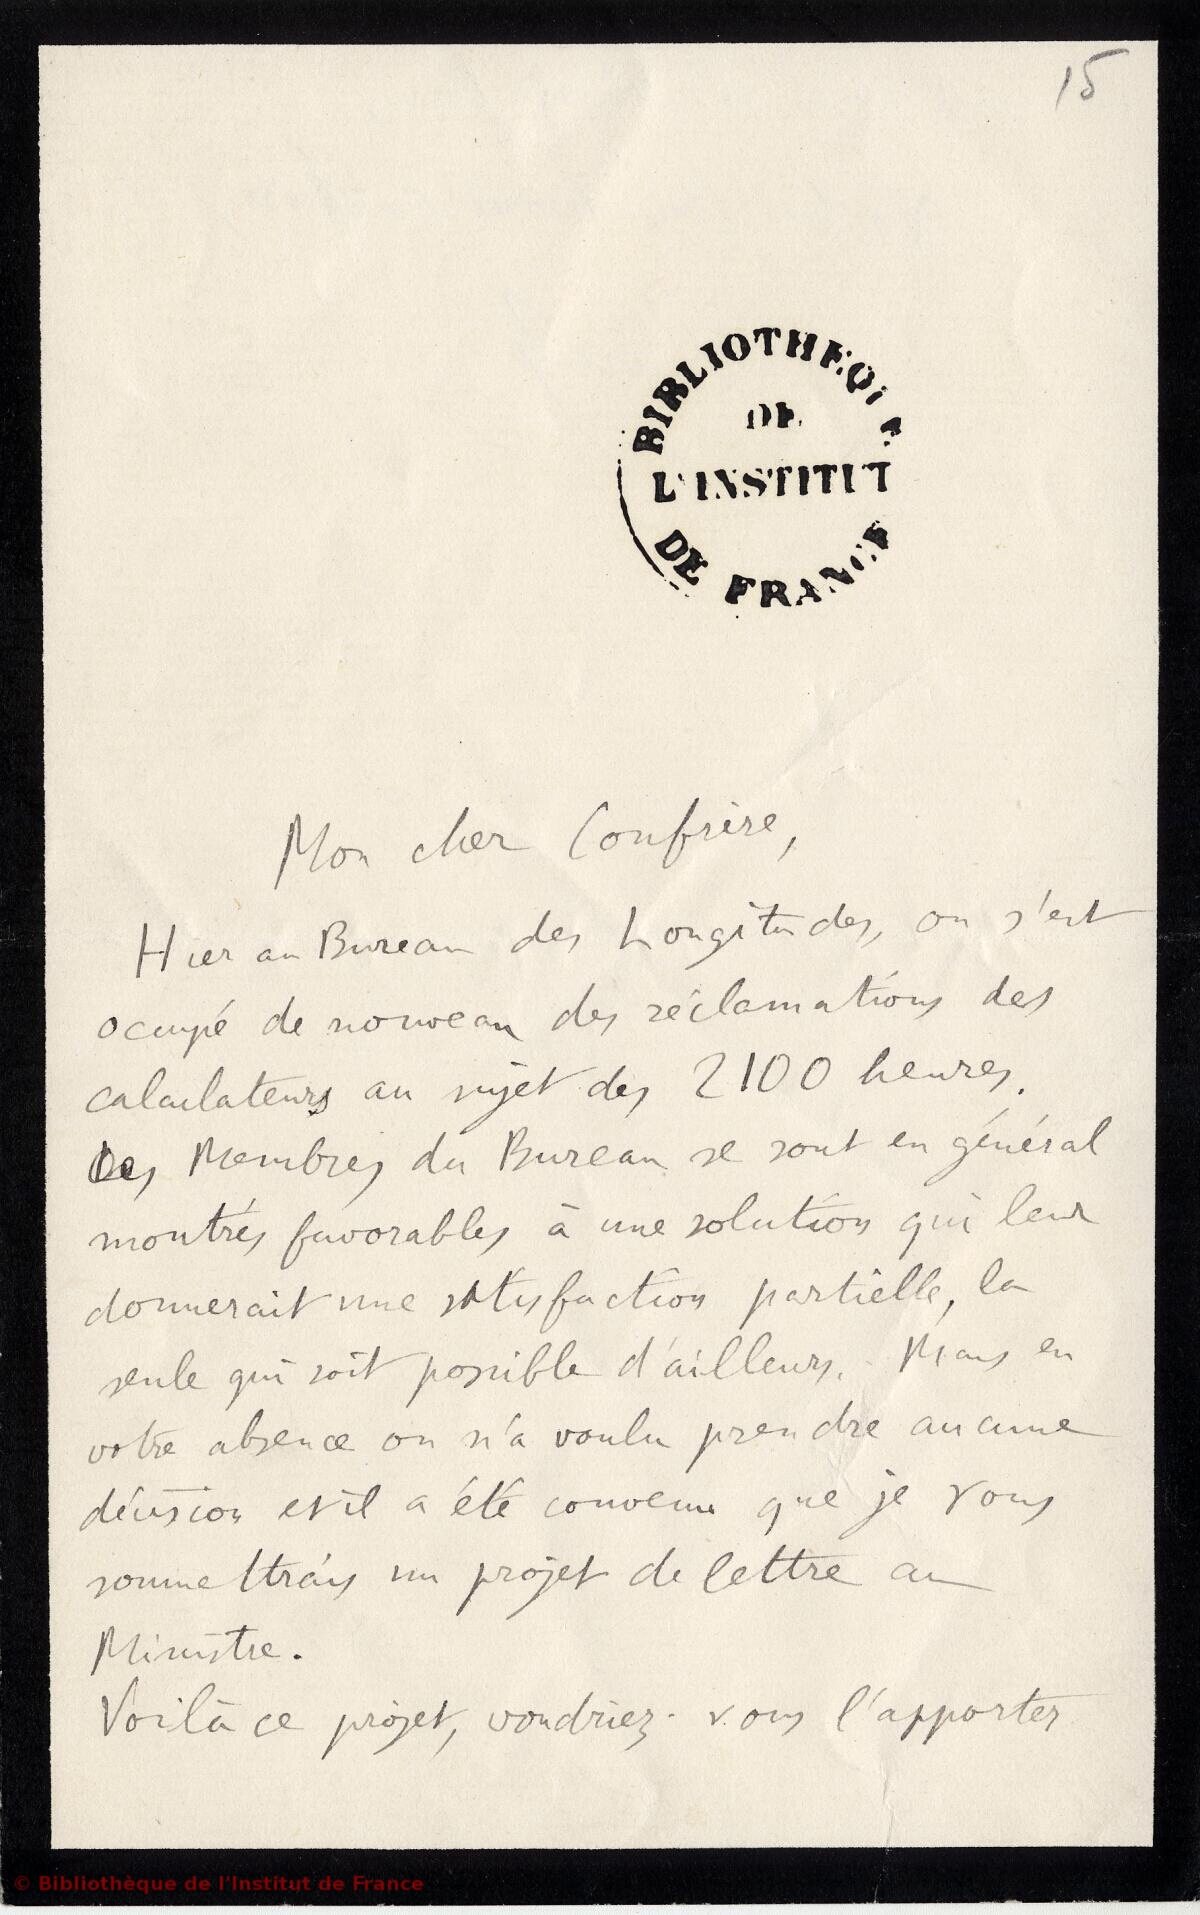 15
BIBLIOTHEQUE
DE
L'INSTITUT
DE FRANCE
Mon cher Confrère,
Hier au Bureau des Longitudes, on s'est
occupé de nouveau des réclamations des
calculateurs au sujet des 2100 heures.
Les Membres du Bureau se sont en général
montrés favorables à une solution qui leur
donnerait une satisfaction partielle, la
seule qui soit possible d'ailleurs. Mais en
votre absence on n'a voulu prendre aucune
décision et il a été convenu que je vous
soumettrais un projet de lettre au
Ministre.
Voilà ce projet, voudriez-vous l'apporter
© Bibliothèque de l'Institut de France